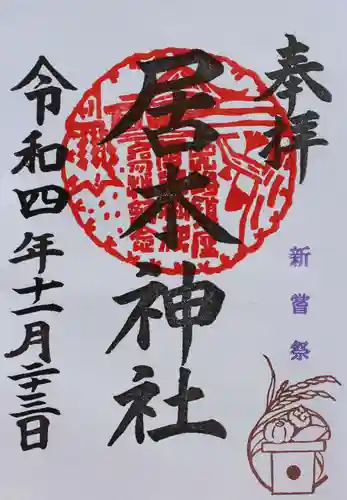 奉拝
新嘗祭
居木神社
令和四年十一月二十三日